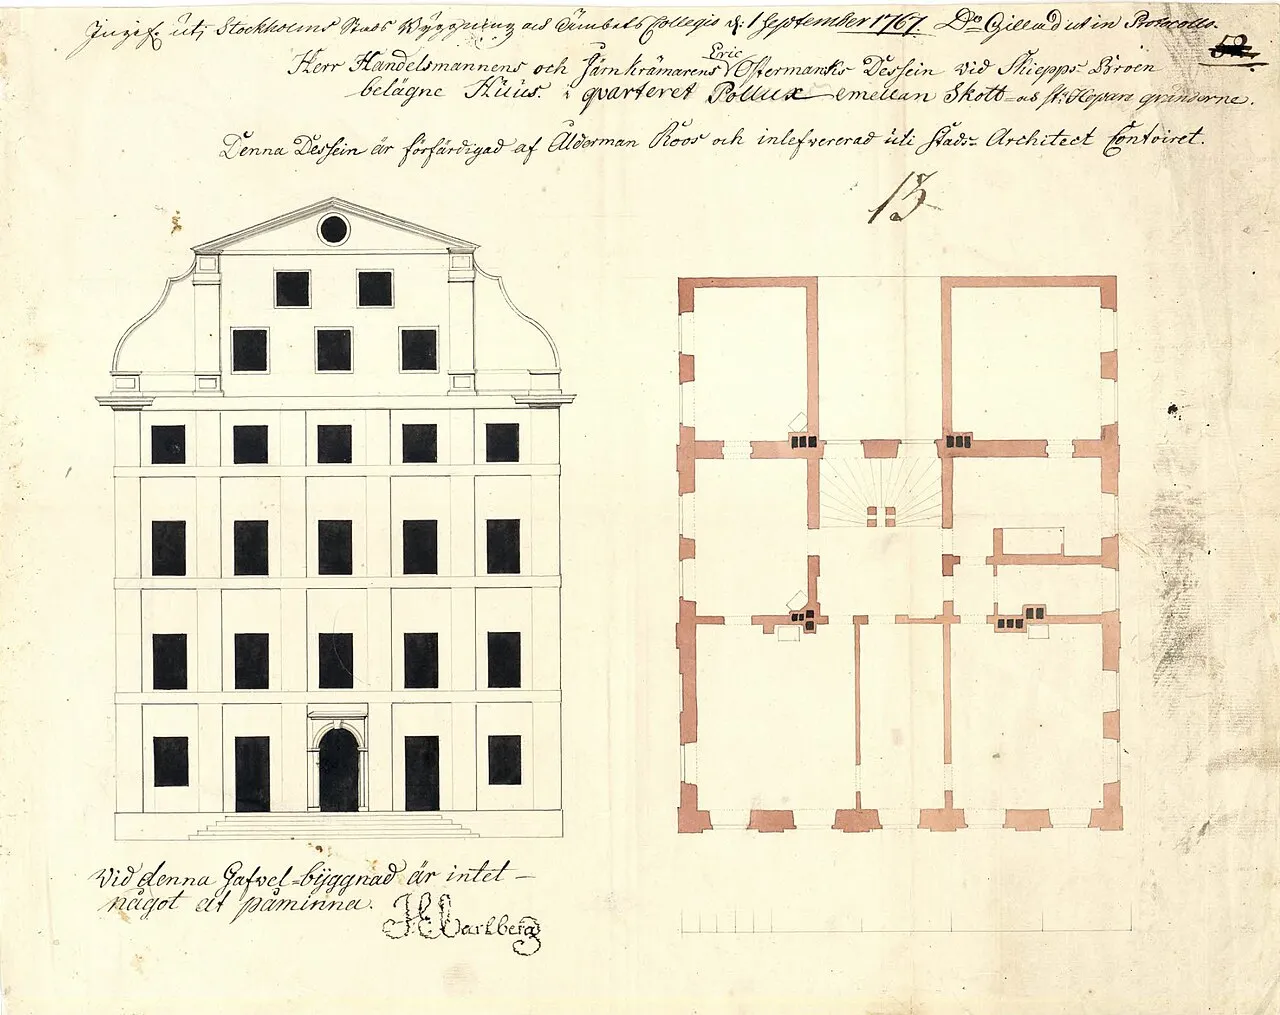 Ingif. uti Stockholms Stads Byggning och Ämbets Collegio d. 1 September 1767. Do Gillad ut in Protocollo.
52.
Herr Handelsmannens och Järnkrämarens Eric Ostermanks Dessein vid Skiepps Broen
belägne Huus. i qvarteret Pollux emellan Skott- och grändorne.
Denna Dessein är förfärdigad af Ålderman Roos och inlefvererad uti Stads- Architect Contoiret.
13
Vid denna Gafvel-byggnad är intet
något at påminna.
Carlberg